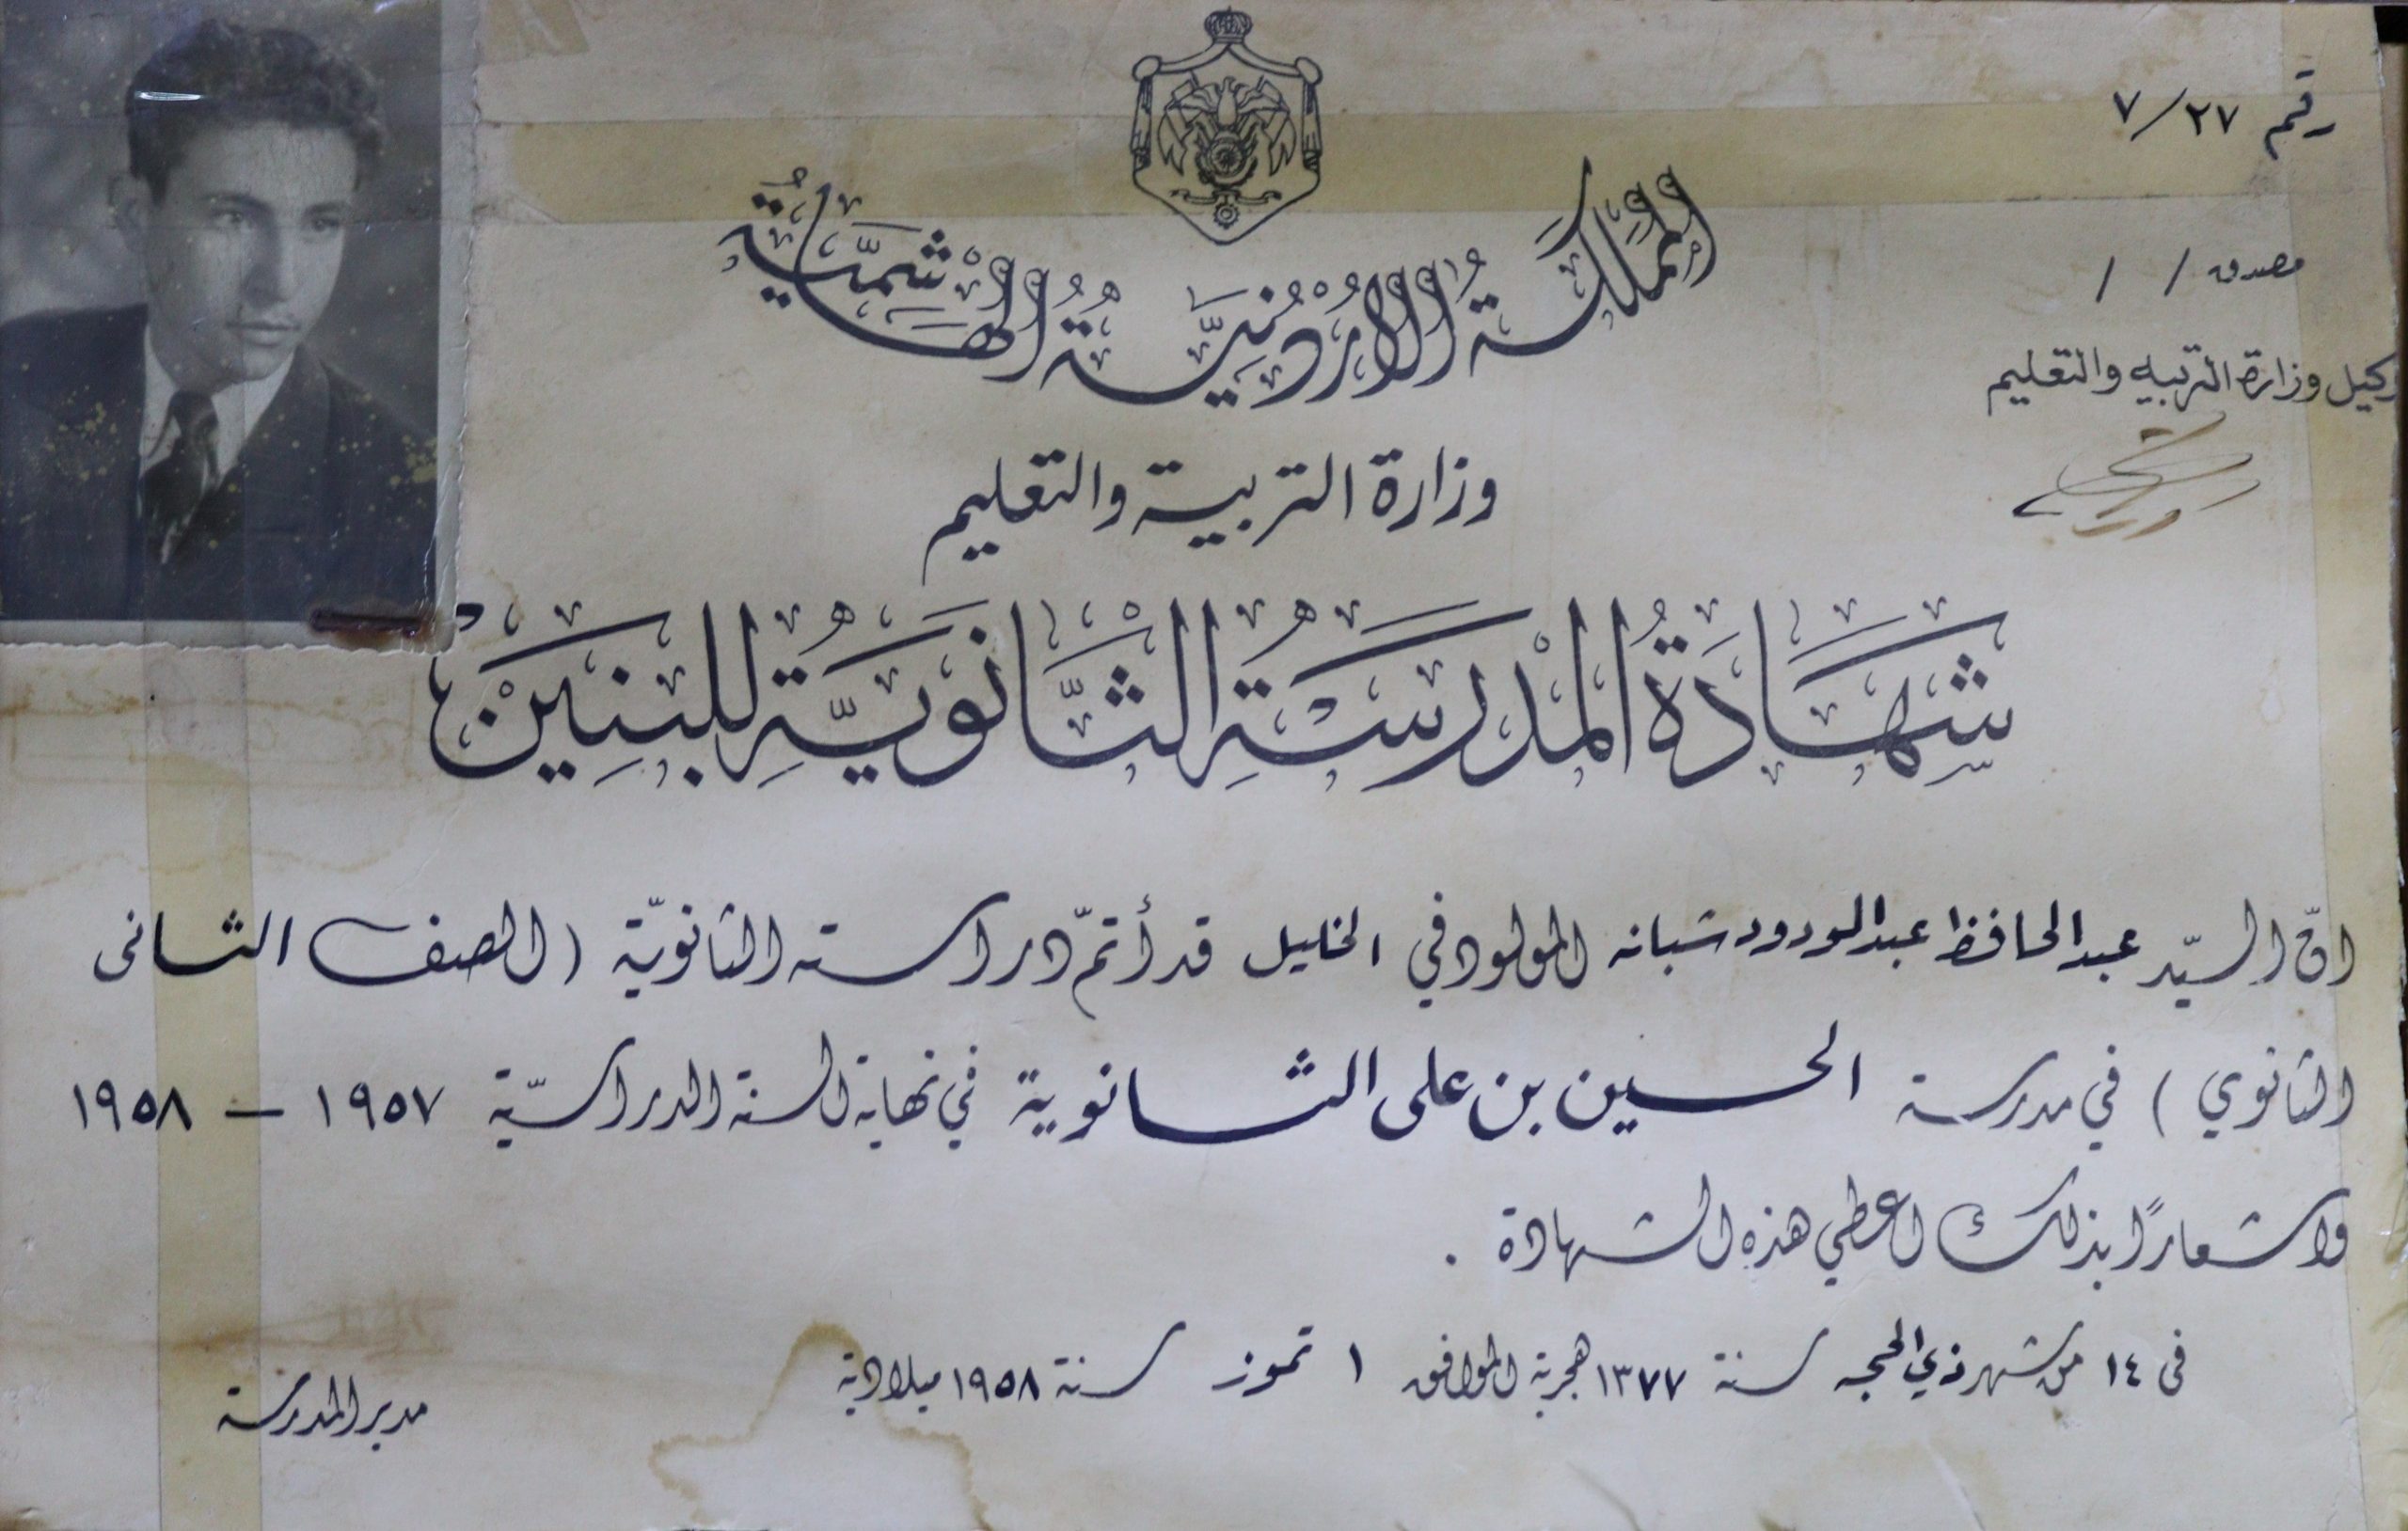 رقم ٧/٢٧
مصدق / /
وكيل وزارة التربيه والتعليم
المَمْلَكَةُ الأُرْدُنِيَّةُ الهَاشِمِيَّةُ
وزارة التربية والتعليم
شَهَادَةُ المَدْرَسَةِ الثَّانَوِيَّةِ لِلبَنِينَ
انّ السيّد عبد الحافظ عبد الودود شبانه المولود في الخليل قد أتمّ دراسته الثانويّة (الصف الثانى
الثانوي) في مدرسة الحسين بن على الثانوية في نهاية السنة الدراسيّة ١٩٥٧ – ١٩٥٨
واشعارًا بذلك اعطي هذه الشهادة .
فى ١٤ من شهر ذي الحجه سنة ١٣٧٧ هجرية الموافق ١ تموز سنة ١٩٥٨ ميلادية
مدير المدرسة